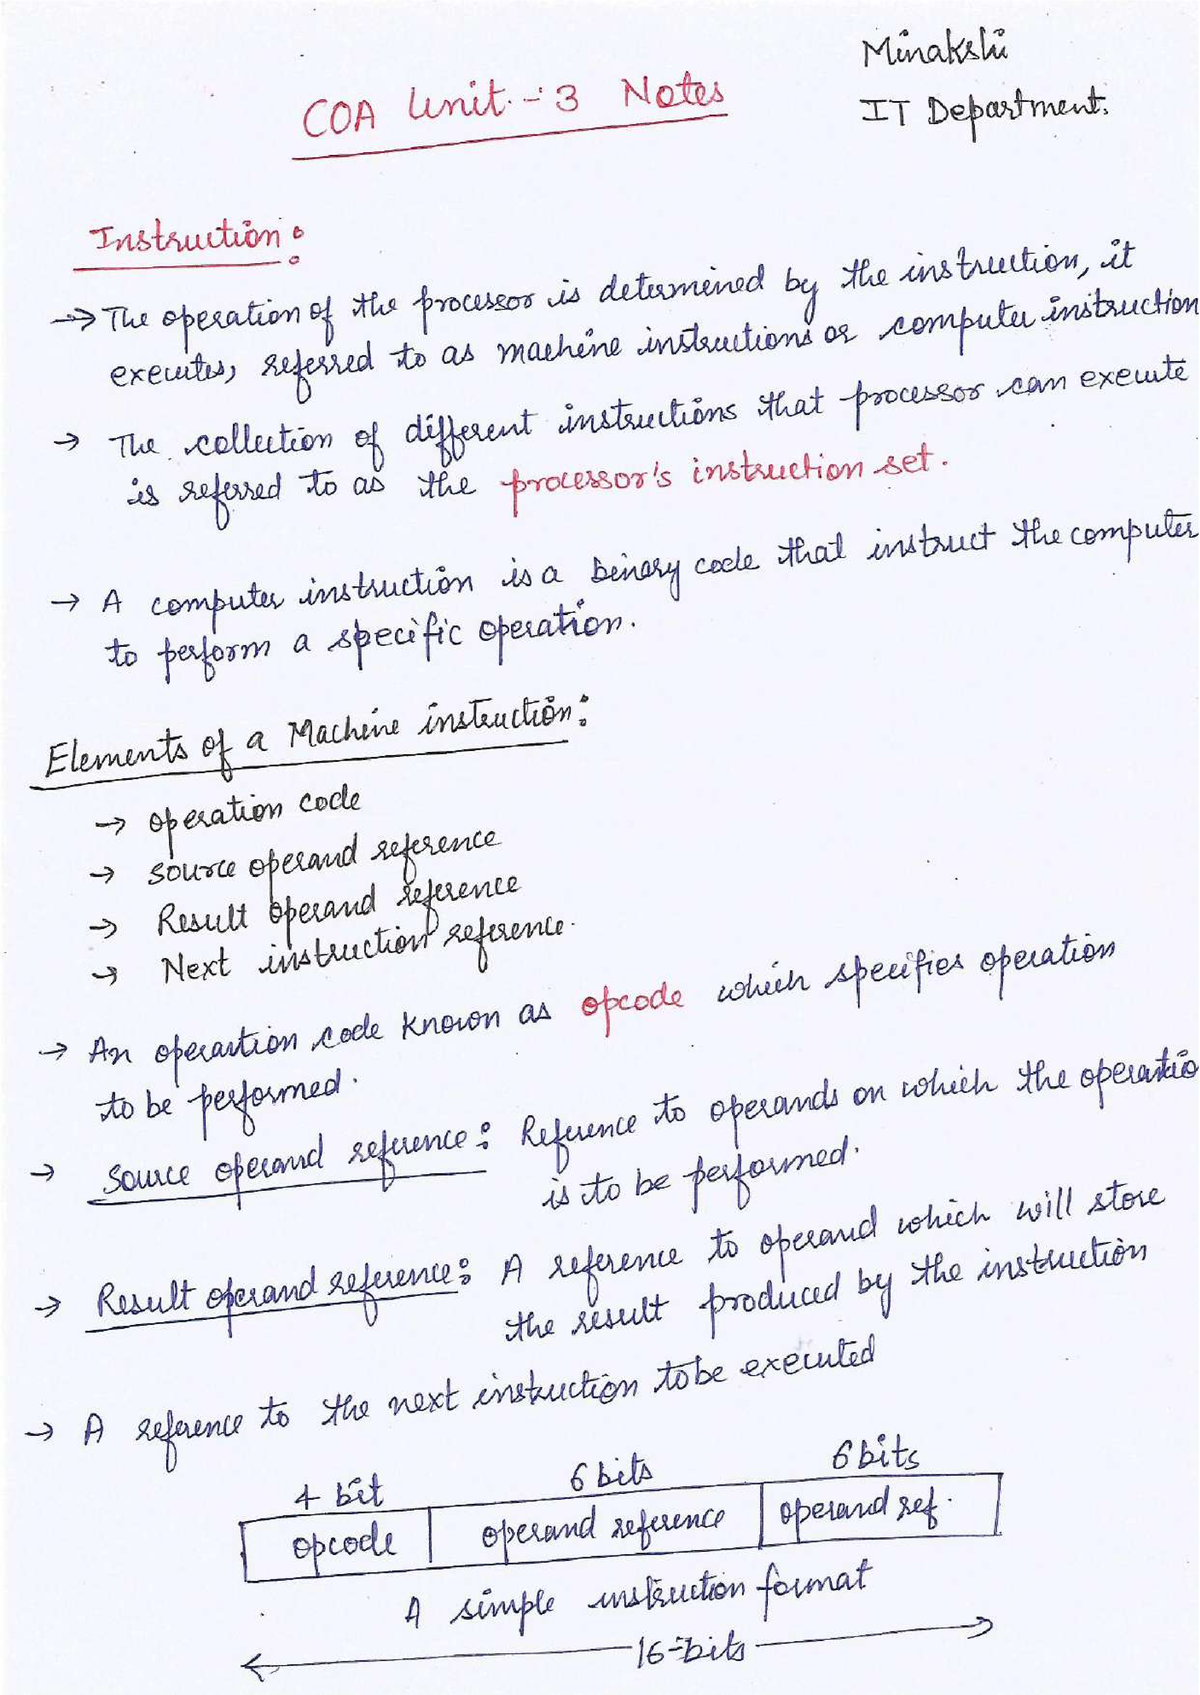 Minakshi
IT Department.
COA Unit - 3 Notes
Instruction:
→ The operation of the processor is determined by the instruction, it
executes, referred to as machine instructions or computer instruction
→ The collection of different instructions that processor can execute
is referred to as the processor's instruction set.
→ A computer instruction is a binary code that instruct the computer
to perform a specific operation.
Elements of a Machine instruction:
→ operation code
→ source operand reference
→ Result operand reference
→ Next instruction reference.
→ An operastion code known as opcode which specifies operation
to be performed.
→ Source operand reference: Reference to operands on which the operatio
is to be performed.
→ Result operand reference: A reference to operand which will store
the result produced by the instruction
→ A reference to the next instruction to be executed
4 bit 6 bits 6 bits
opcode operand reference operand ref.
A simple instruction format
16-bits